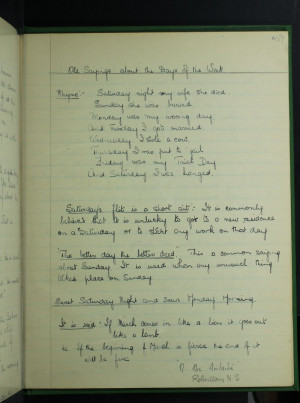 Old Sayings about the Days of the Week
Rhyme:- Saturday night my wife she died
Sunday she was buried
Monday was my wooing day
And Tuesday I got married
Wednesday I stole a cow
Thursday I was put to
Friday was my Trial Day
And Saturday I was hanged.
"Saturday's flit is a short sit"- It is commonly
believed that it is unlucky to go to a new residence
on a "Saturday" or to start any work on that day
"The better day the better deed" This a common saying
about Sunday. It is used when any unusual thing
takes place on Sunday
Sweet Saturday Night and Sour Monday Morning.
It is said:- If March comes in like a lion it goes out
like a lamb
ie if the beginning of March is fierce the end of it
will be fine
N.S.